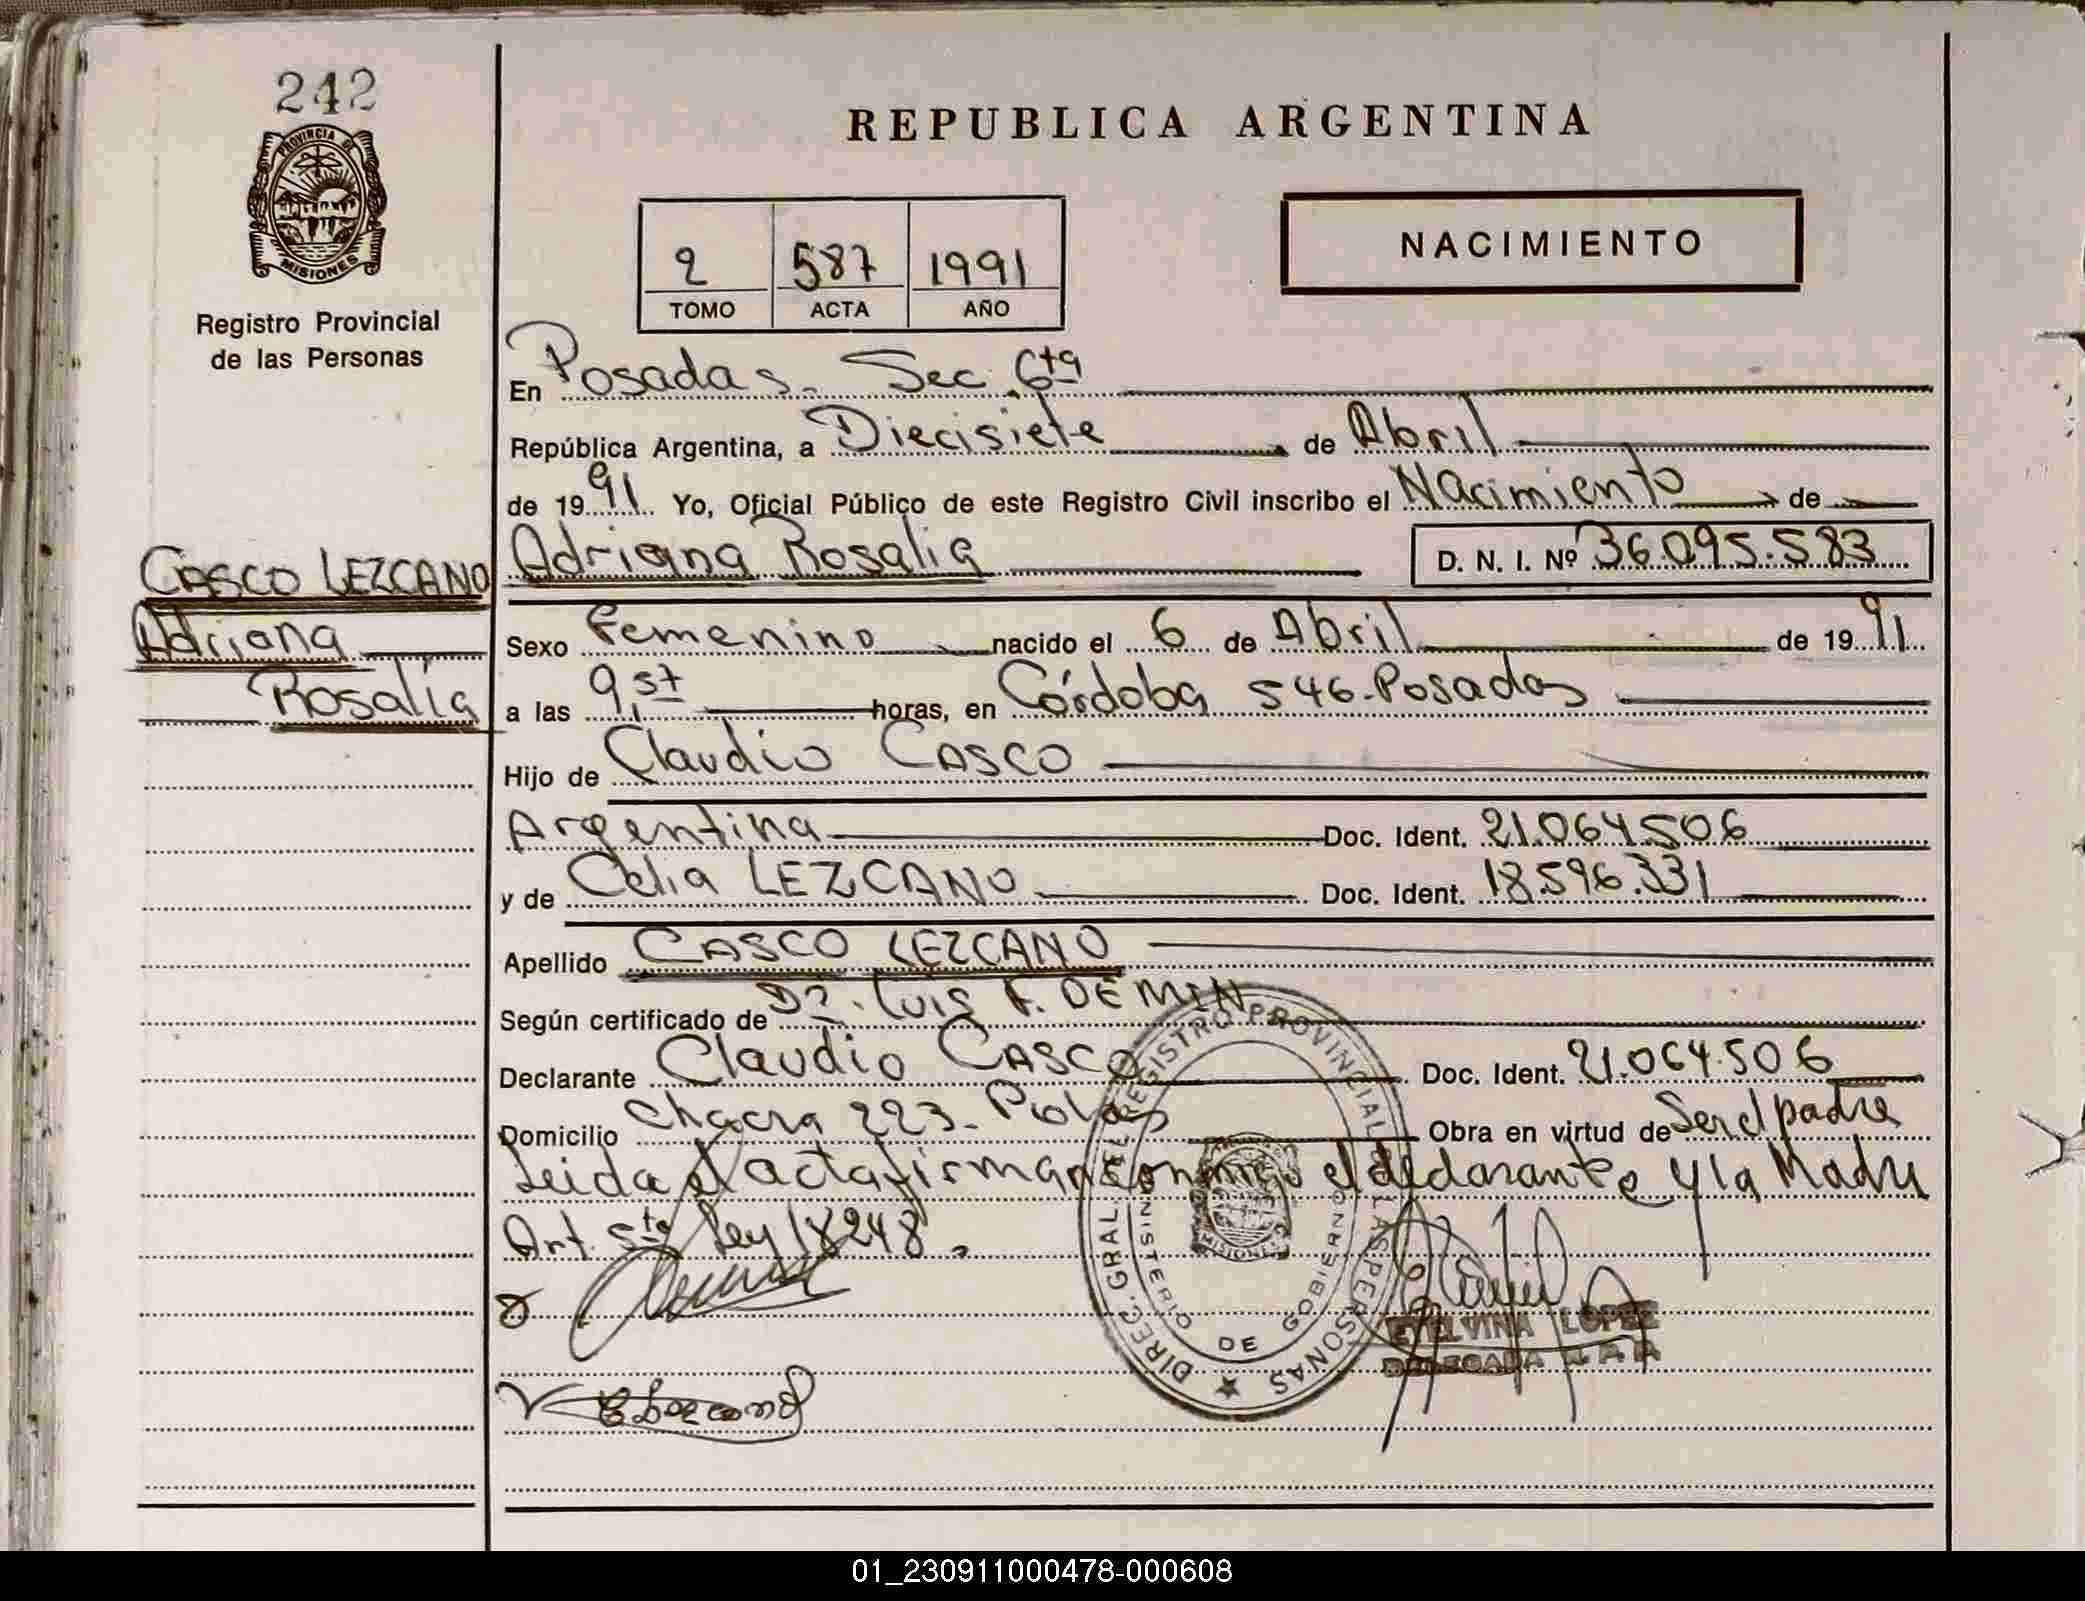 242
PROVINCIA DE
MISIONES
Registro Provincial
de las Personas
REPUBLICA ARGENTINA
NACIMIENTO
2 587 1991
TOMO ACTA AÑO
En Posadas. Sec. 6ta
República Argentina, a Diecisiete de Abril
de 1991 Yo, Oficial Público de este Registro Civil inscribo el Nacimiento de
CASCO LEZCANO
Adriana
Rosalía
Adriana Rosalia D. N. I. Nº 36.095.583
Sexo Femenino nacido el 6 de Abril de 1991
a las 9, horas, en Córdoba 546-Posadas
Hijo de Claudio CASCO
Argentina Doc. Ident. 21.064.506
y de Celia LEZCANO Doc. Ident. 18.596.331
Apellido CASCO LEZCANO
Según certificado de Dr. Luis F. DEMIN
Declarante Claudio CASCO Doc. Ident. 21.064.506
Domicilio Chacra 223- Obra en virtud de Ser el padre
Leida el acta firman conmigo el declarante y la Madre
Art. 5to Ley 18248.
DIREC. GRAL. DEL REGISTRO PROVINCIAL DE LAS PERSONAS
MINISTERIO DE GOBIERNO
MISIONES
LOPEZ
DELEGADA
01_230911000478-000608